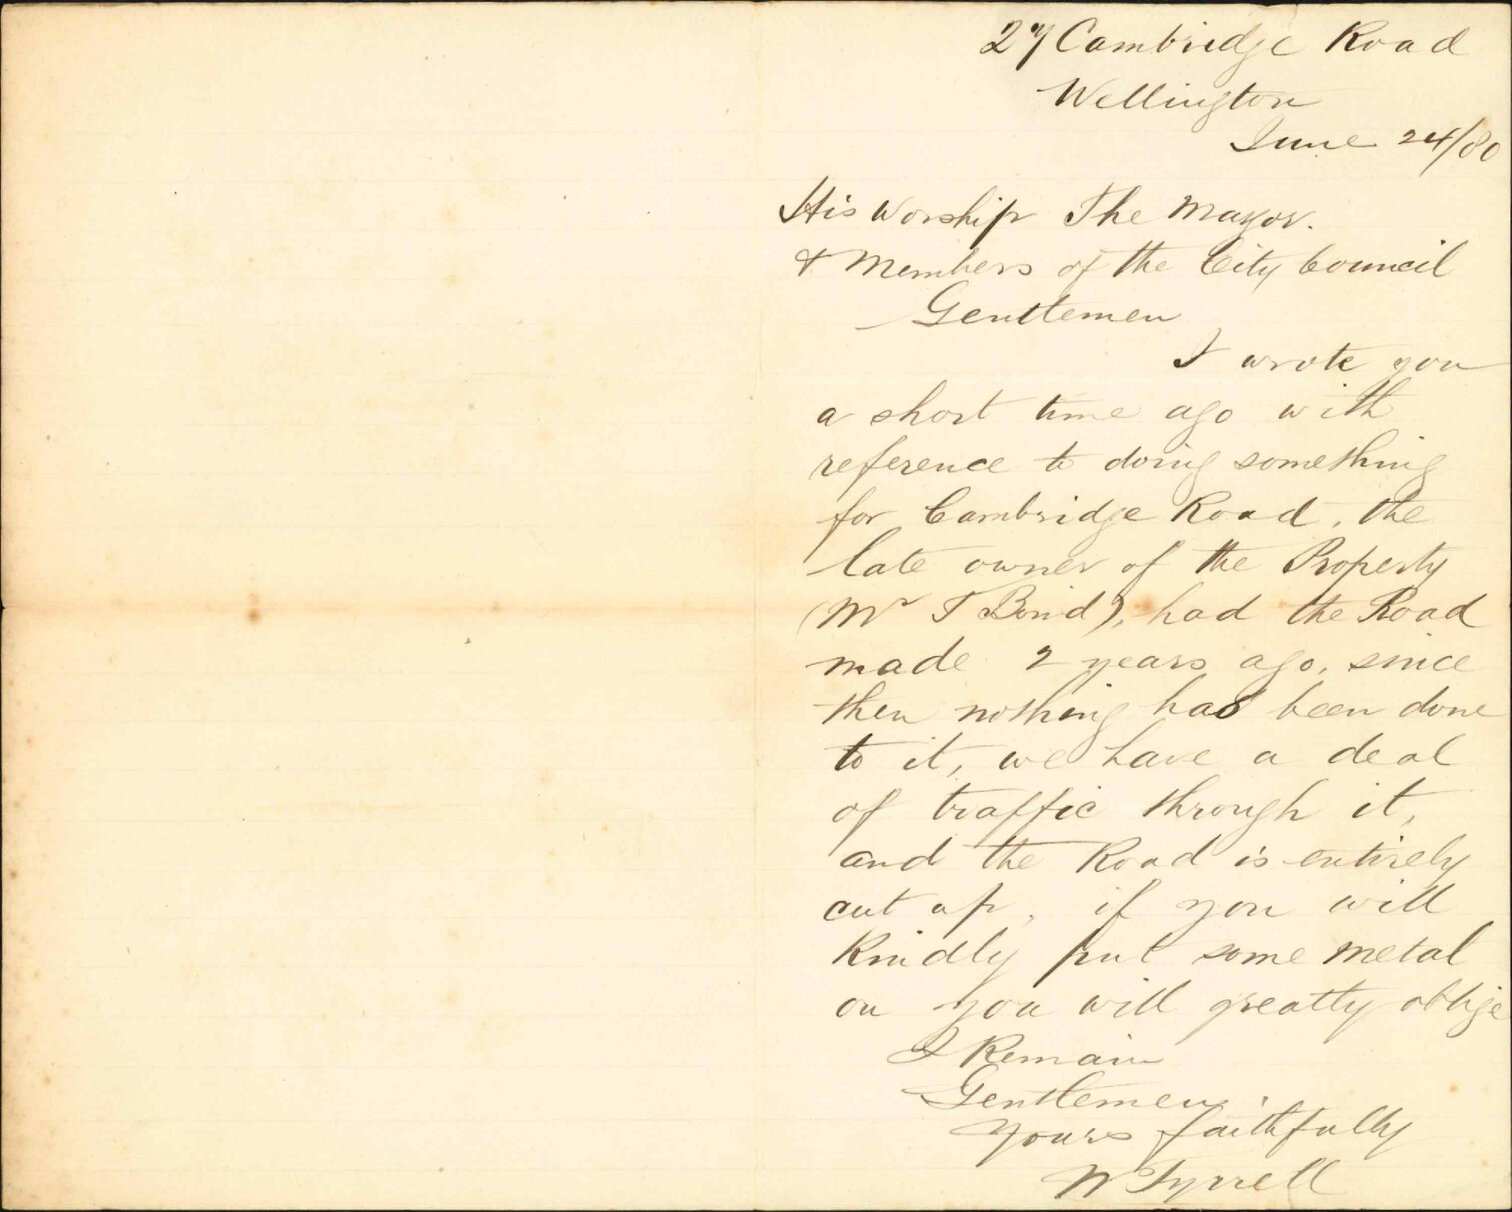 27 Cambridge Road
Wellington
June 24/80
His Worship The Mayor.
& Members of the City Council
Gentlemen
I wrote you
a short time ago with
reference to doing something
for Cambridge Road, the
late owner of the Property
(Mr T Bond), had the Road
made 2 years ago, since
then nothing has been done
to it, we have a deal
of traffic through it,
and the Road is entirely
cut up, if you will
Kindly put some metal
on you will greatly oblige
I Remain
Gentlemen
Yours faithfully
W Tyrrell